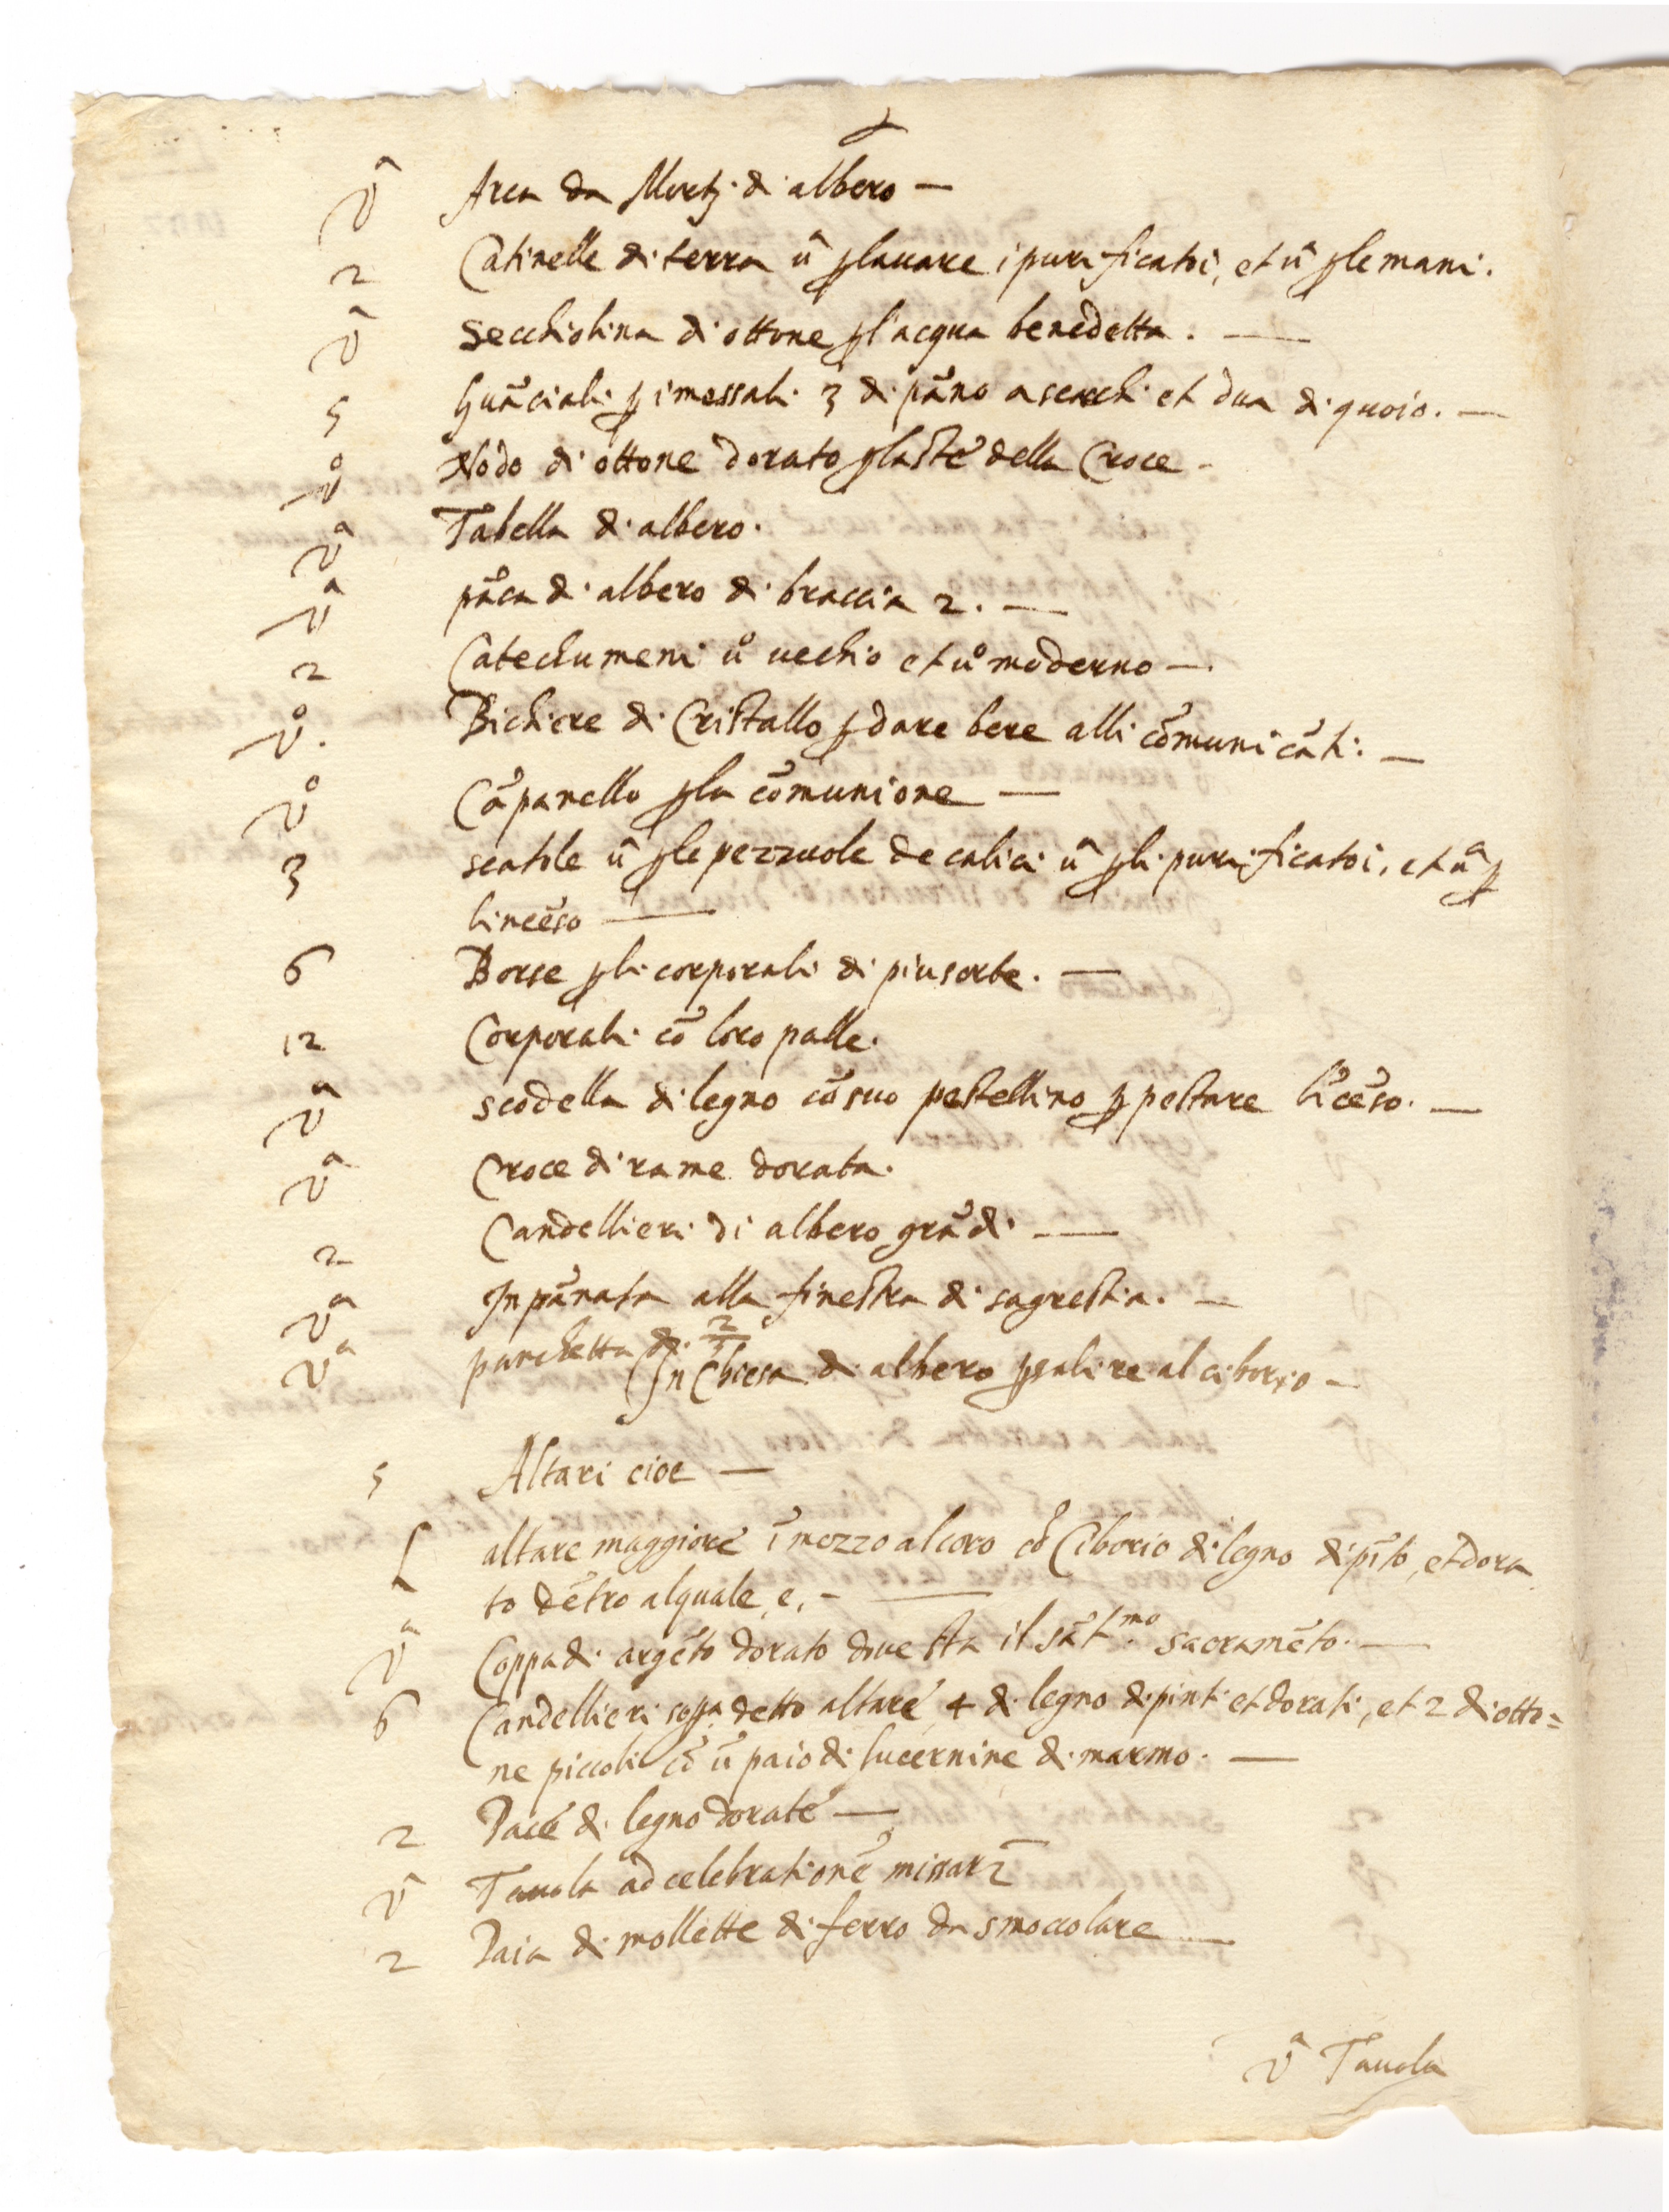 Vᵃ Arca da Mortj di albero —
2 Catinelle di terra uᵃ p lauare i purificatoi, et uᵃ p le mani.
Vᵃ Secchiolina di ottone p l'acqua benedetta. —
5 Guãciali p i messali 3 di pãno a scacchi et dua di quoio. —
Vᵒ Nodo di ottone dorato p laste della Croce -
Vᵃ Tabella di albero.
Vᵃ pãca di albero di braccia 2. —
2 Catechumeni uᵒ uechio et uᵒ moderno —.
Vᵒ. Bichiere di Cristallo p dare bere alli cõmunicãti. —
Vᵒ Cãpanello p la cõmunione —
3 scatole uᵃ p le pezzuole de calici uᵃ p li purificatoi, et uᵃ p
lincẽso —
6 Borse p li corporali di piu sorte. —
12 Corporali cõ loro palle.
Vᵃ scodella di legno cõ suo pestellino p pestare lĩcẽso. —
Vᵃ Croce di rame dorata.
2 Candellieri di albero grãdi. —
Vᵃ Inpãnata alla finestra di sagrestia. —
Vᵃ panchetta di 2
In Chiesa di albero p salire al ciborio —
5 Altari cioe —
L altare maggiore ĩ mezzo al coro cõ Ciborio di legno dipĩto, et dora
to dẽtro alquale, e, - —
Vᵃ Coppa di argẽto dorato doue sta il sãt.ᵐᵒ sacramẽto. —
6 Candellieri sopᵃ detto altare 4 di legno dipinti et dorati, et 2 di otto=
ne piccoli cõ ũ paio di lucernine di marmo. —
2 Pace di legno dorate —
Vᵃ Tauola ad celebrationẽ missarꝝ
2 Paia di mollette di ferro da smoccolare —
Vᵃ Tauola